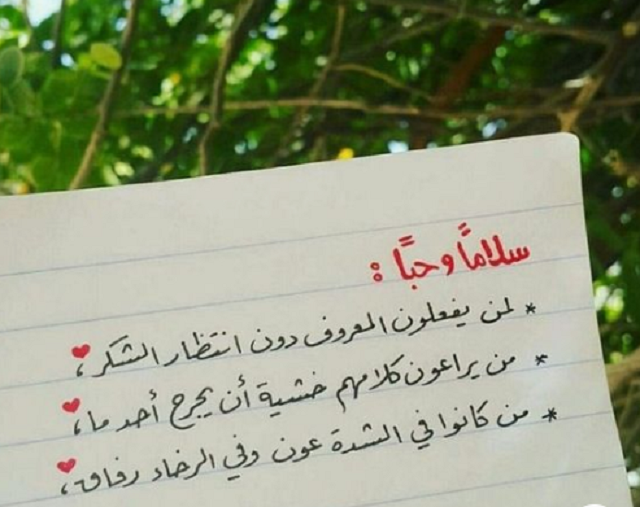 سلاماً وحباً :
* لمن يفعلون المعروف دون انتظار الشكر،
* من يراعون كلامهم خشية أن يجرح أحد ما،
* من كانوا في الشدة عون وفي الرخاء رفاق،